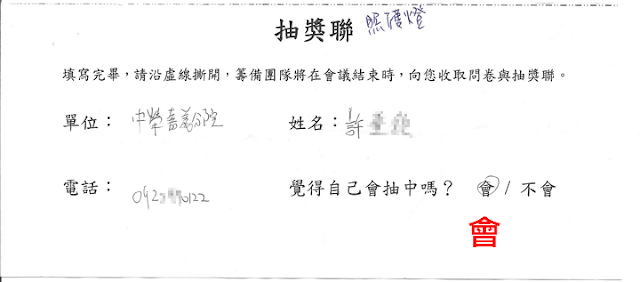 抽獎聯 照護燈
填寫完畢，請沿虛線撕開，籌備團隊將在會議結束時，向您收取問卷與抽獎聯。
單位： 中榮嘉義分院 姓名： 許
電話： 092 0122 覺得自己會抽中嗎？ 會 / 不會
會